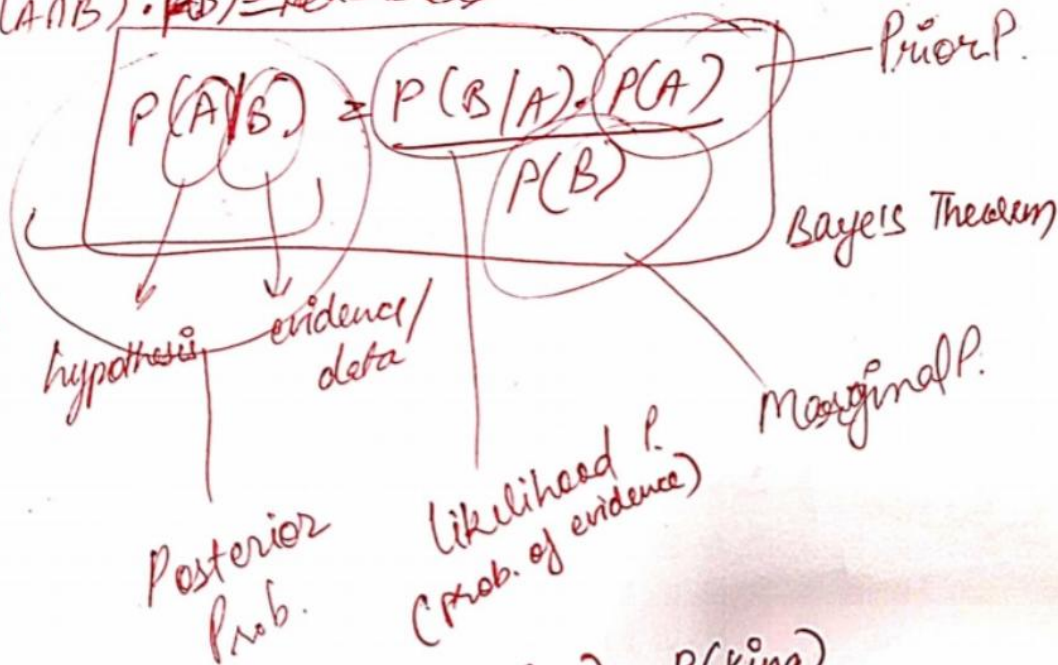 (A∩B) .
P(A|B) = P(B/A). P(A)
P(B)
Prior P.
Baye's Theorem
hypothesis
evidence/
data
Marginal P.
Posterior
Prob.
Likelihood P.
(prob. of evidence)
P(King)